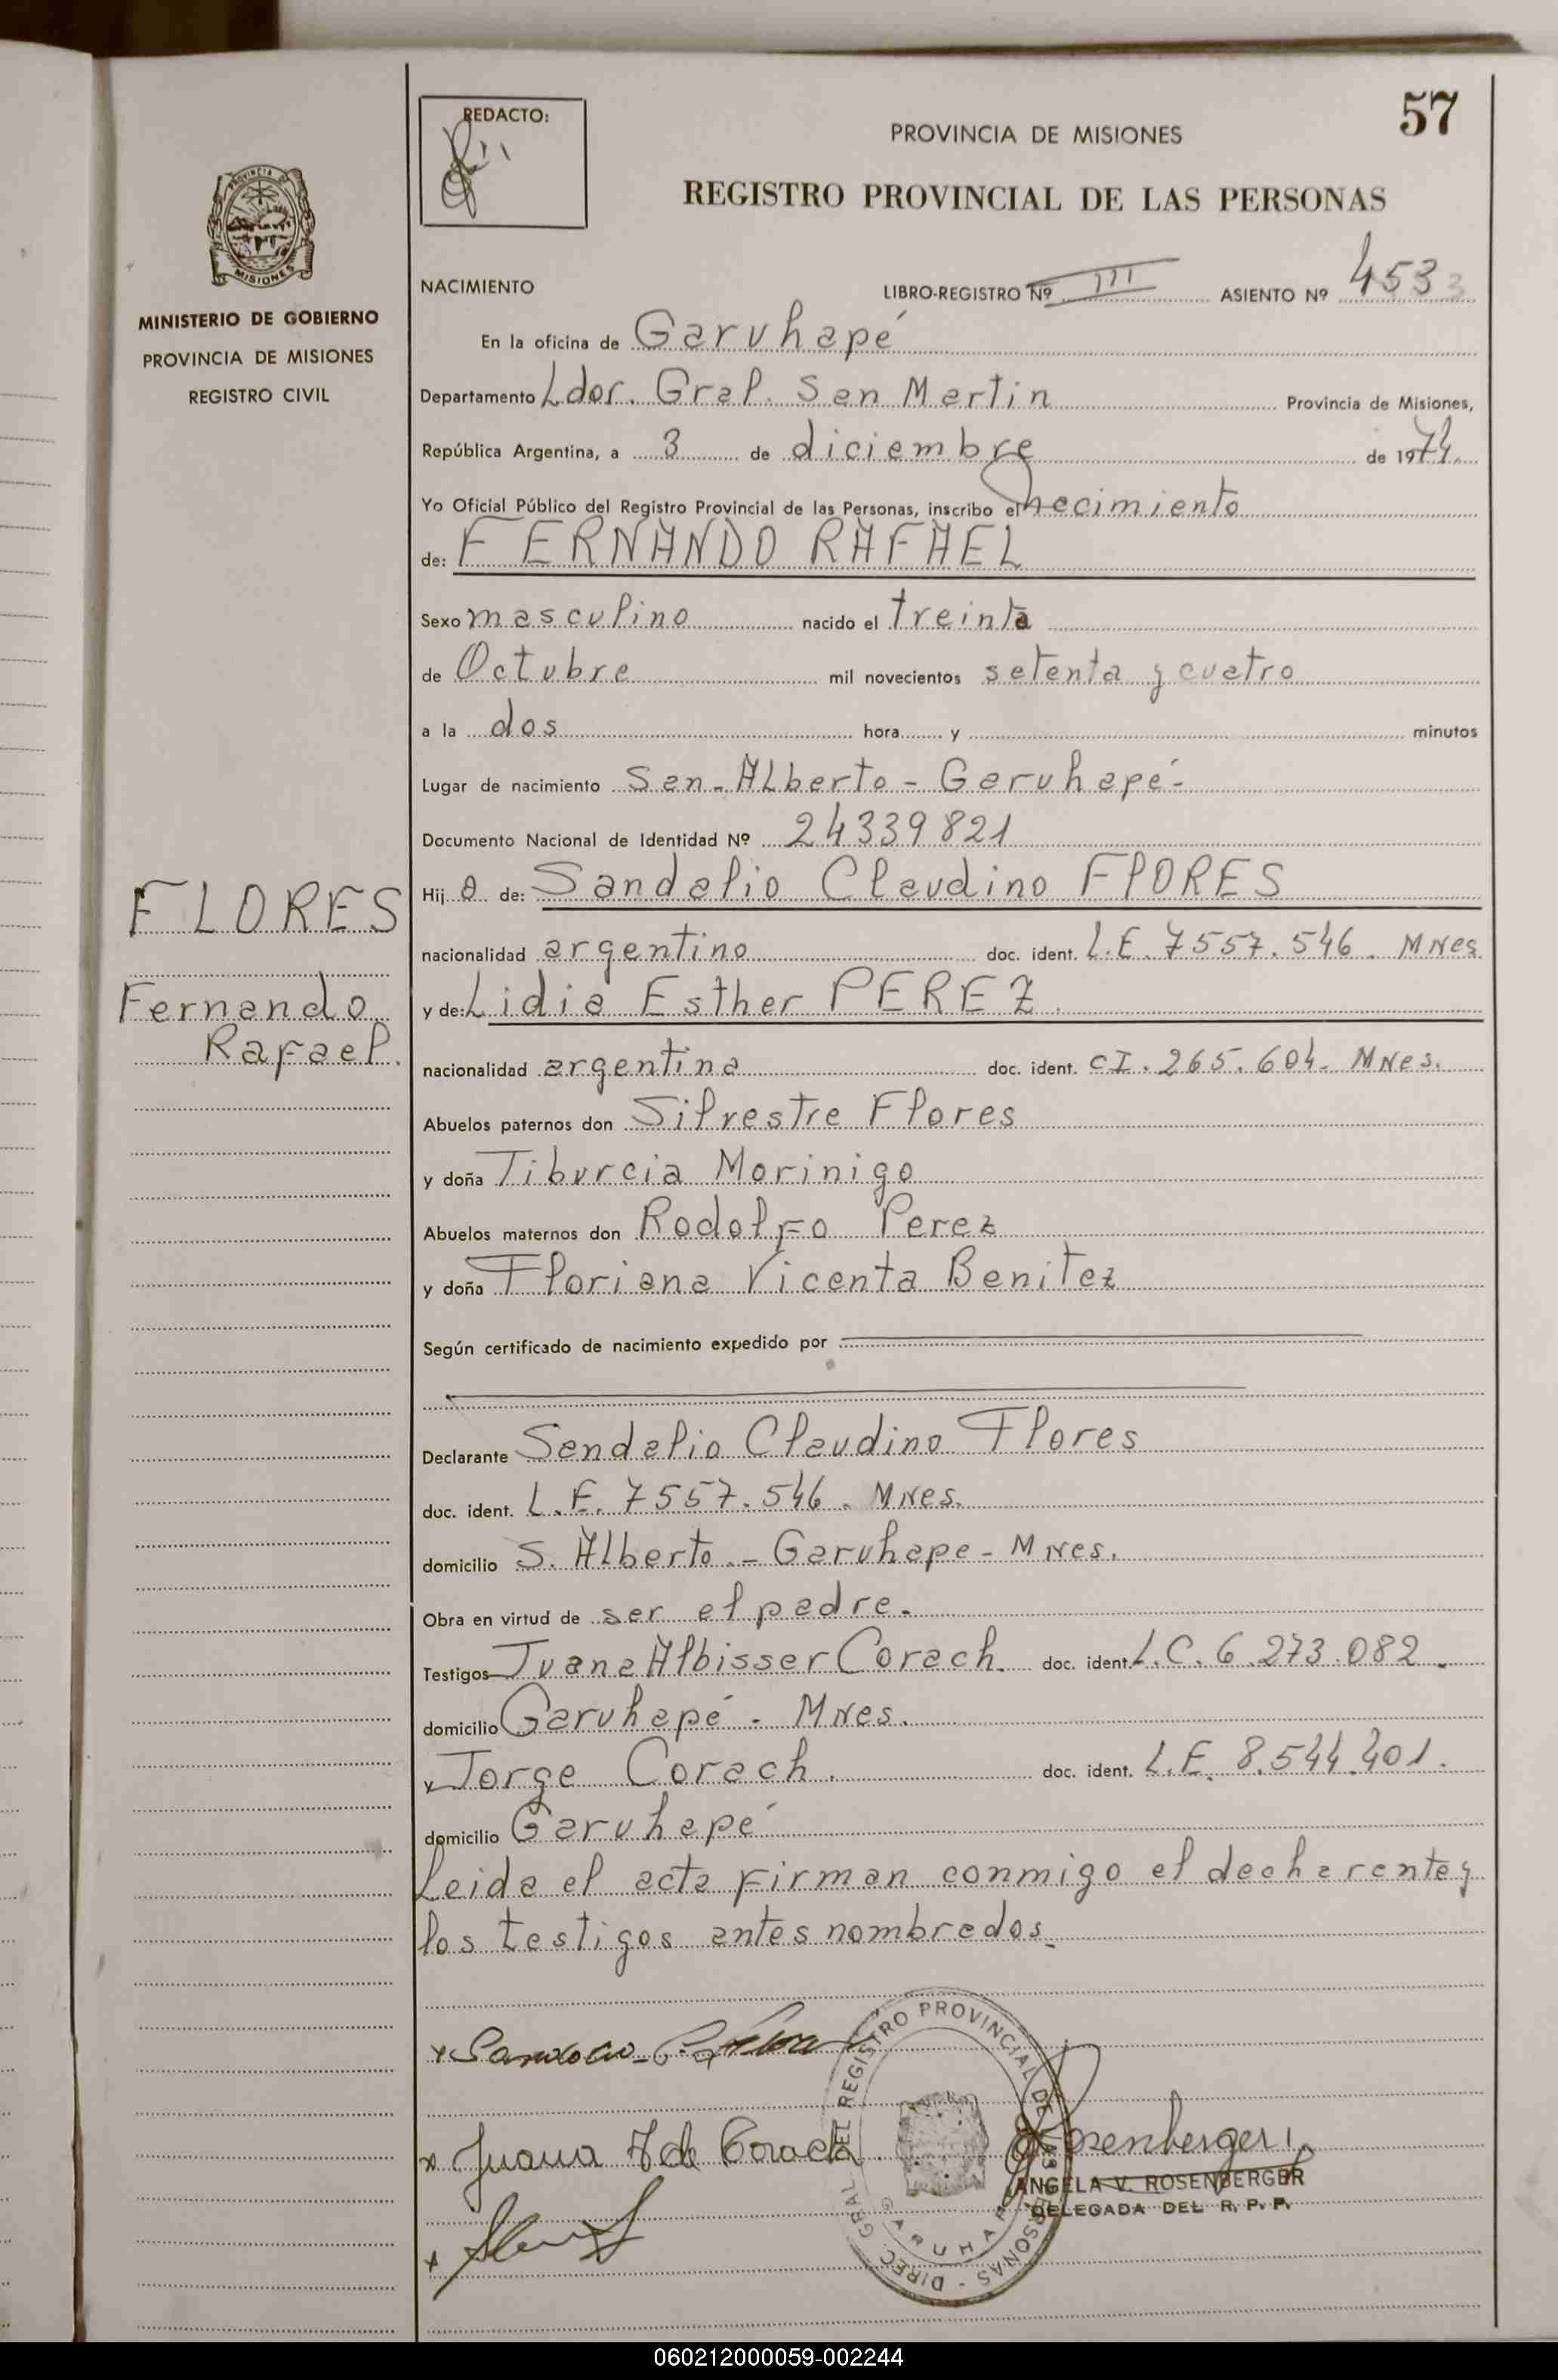 57
REDACTO:
PROVINCIA DE MISIONES
REGISTRO PROVINCIAL DE LAS PERSONAS
PROVINCIA DE
MISIONES
MINISTERIO DE GOBIERNO
PROVINCIA DE MISIONES
REGISTRO CIVIL
NACIMIENTO LIBRO-REGISTRO Nº III ASIENTO Nº 4533
En la oficina de Garuhapé
Departamento Ldor. Gral. San Martin Provincia de Misiones,
República Argentina, a 3 de diciembre de 1974
Yo Oficial Público del Registro Provincial de las Personas, inscribo el nacimiento
de: FERNANDO RAFAEL
Sexo masculino nacido el treinta
de Octubre mil novecientos setenta y cuatro
a la dos hora y minutos
Lugar de nacimiento San-Alberto-Garuhapé-
Documento Nacional de Identidad Nº 24339821
FLORES
Hij o de: Sandalio Claudino FlORES
nacionalidad argentino doc. ident. L.E. 7557.546. MNes
Fernando
y de: Lidia Esther PEREZ.
Rafael.
nacionalidad argentina doc. ident. CI. 265.604- MNes.
Abuelos paternos don Silvestre Flores
y doña Tiburcia Morinigo
Abuelos maternos don Rodolfo Perez
y doña Floriana Vicenta Benitez
Según certificado de nacimiento expedido por
Declarante Sandalio Claudino Flores
doc. ident. L.E. 7557.546. MNes.
domicilio S. Alberto.-Garuhape-MNes.
Obra en virtud de ser el padre.
Testigos Juana Albisser Corach. doc. ident. L.C. 6.273.082.
domicilio Garuhapé. MNes.
y Jorge Corach. doc. ident. L.E. 8.544.401.
domicilio Garuhapé
Leida el acta firman conmigo el decharente y
los testigos antes nombrados.
DIREC. GRAL. DEL REGISTRO PROVINCIAL DE LAS PERSONAS -
GARUHAPE
x Juana A de Corach
Rosenberger
ANGELA V. ROSENBERGER
DELEGADA DEL R. P. P.
060212000059-002244